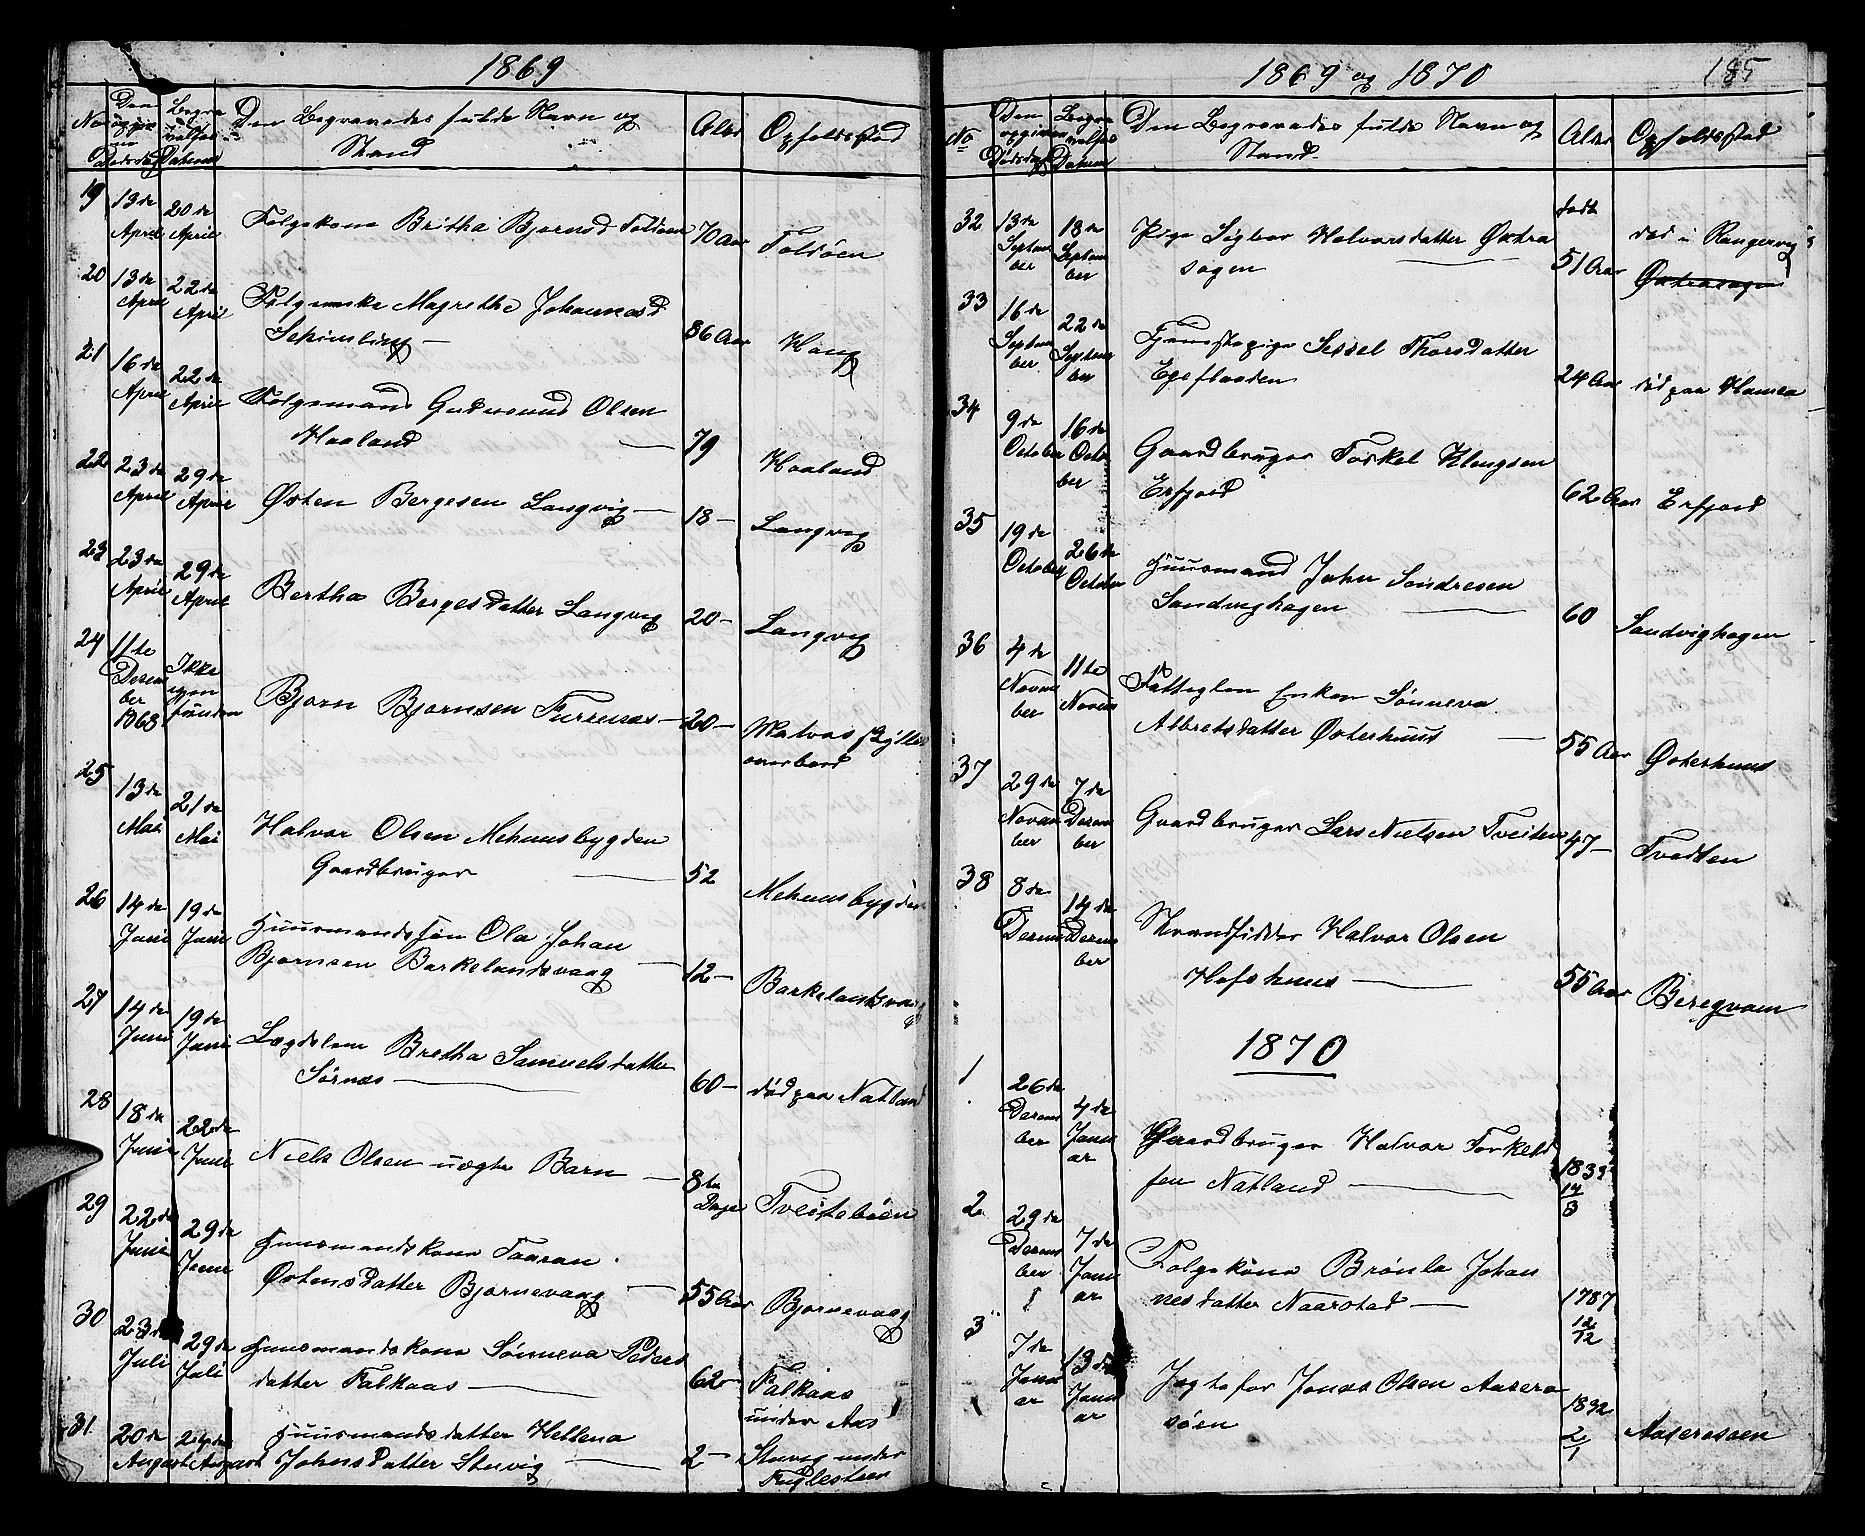 1869
No
Den opgivne Dødsdag
Begravelses Datum
Den Begravedes fulde Navn og
Stand
Alder
Opholdssted
19 13de April 20de April Folgekone Britha Bjornsd Foldøen 70 Aar Foldøen
20 13de April 22de April Magrethe Johannesd
86 Aar Haug
21 16de April 22de April Folgemand Gudmund Olsen
Haaland 79 Haaland
22 23de April 29de April Østen Bergesen Langvig 18 Langvig
23 23de April 29de April Bertha Bergesdatter Langvig 20 Langvig
24 11te Decem
ber 1868 Ikke igjen funden Bjorn Bjornsen Furrenæs 20
overbord
25 13de Mai 21de Mai Halvor Olsen Mehuusbygden
Gaardbruger 52 Mehuusbygden
26 14de Juni 19de Juni Huusmandssøn Ola Johan
Bjornsen Barkelandsvaag 12 Barkelandsvaag
27 14de Juni 19de Juni Lægdslem Bretha Samuelsdatter
Sørnæs 60 død paa Natland
28 18de Juni 22de Juni Niels Olsen uægte Barn 8te Dage Tveitebøen
29 22de Juni 29de Juni Huusmandskone Taaran
Østensdatter Bjornevaag 55 Aar Bjornevaag
30 23de Juli 29de Juli Huusmandskone Sønneva Peders
datter Falkaas 62 Falkaas
under Aas
31 20de August 24de August Huusmandsdatter Hellena
Johnsdatter Stuvig 2 Stuvig under
Fuglesteen
1869 og 1870
185
No
Den opgivne Dødsdag
Begravelses Datum
Den Begravedes fulde Navn og
Stand
Alder
Opholdssted
32 13de September 18de September Pige Sigbor Halvorsdatter Øxtra
sagen 51 Aar død i Rangervig
Øxtrasagen
33 16de September 22de September Tjenestepige Sessel Thorsdatter
24 Aar død paa Hamra
34 9de October 16de October Gaardbruger Torkel Klengsen
Erfjord 62 Aar Erfjord
35 19de October 26de October Huusmand John Sondresen
Sandvighagen 60 Sandvighagen
36 4de November 11te Novem Fattiglem Enken Sønneva
Albretsdatter Østerhuus 55 Aar Østerhuus
37 29de November 7de December Gaardbruger Lars Nielsen Tveiten 47 Tvedten
38 8de Decem 14de December Strandsidder Halvor Olsen
Hofshuus 55 Aar
1870
1 26de December 4de Januar Gaardbruger Halvor Torkeld
sen Natland 1833 14/3
2 29de December 7de Januar Folgekone Brønla Johan
nesdatter Naarstad 1787 12/12
3 7de Januar 13de Januar Jonas Olsen Aasera
søen 1832 2/1 Aaserasøen